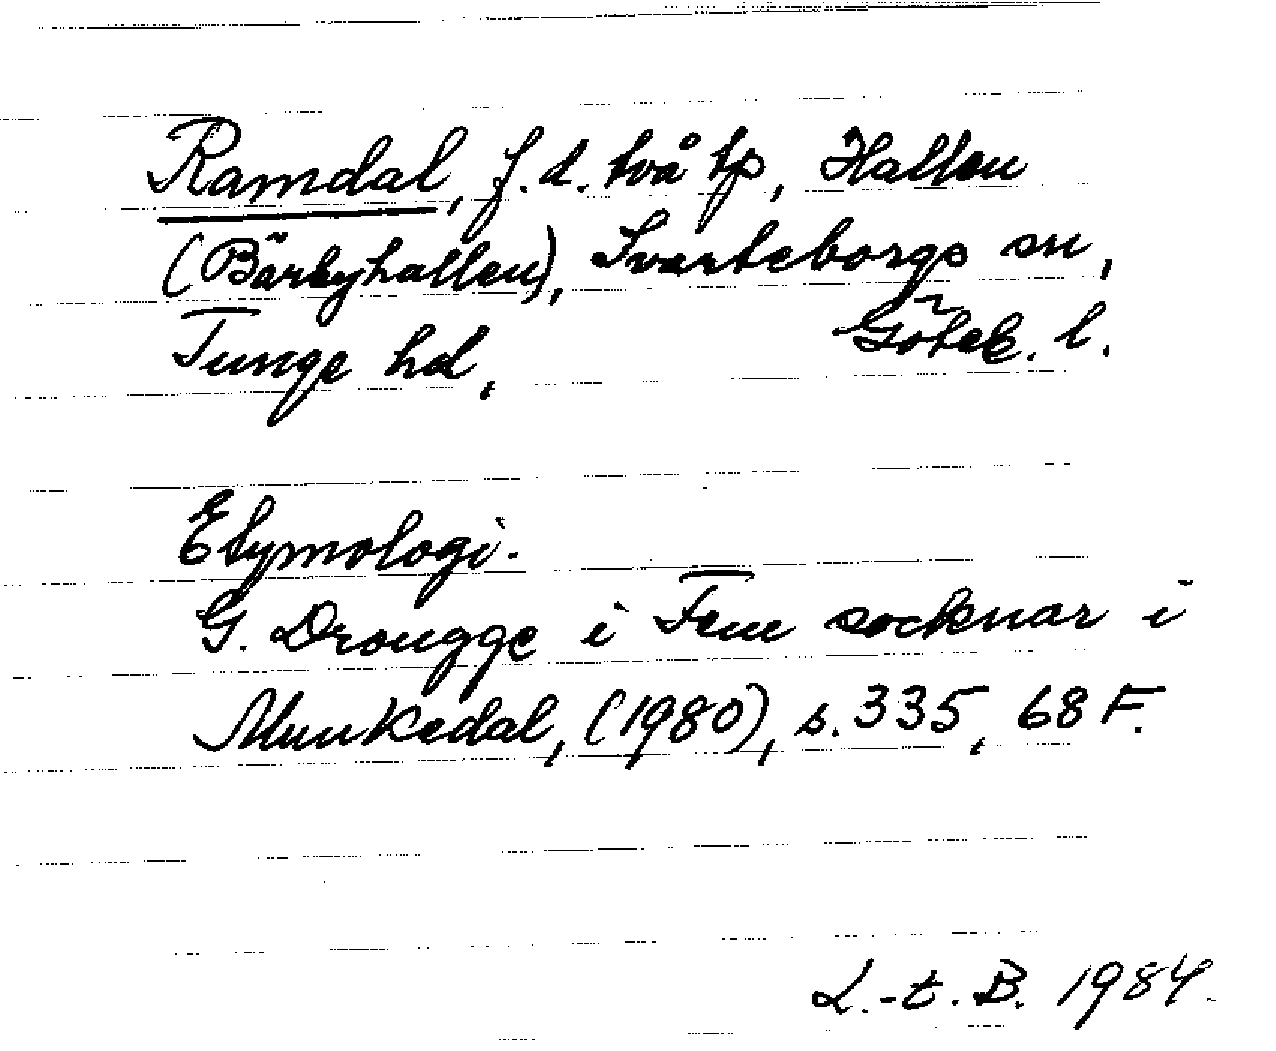 Ramdal, f.d. två tp, Hallen
(Bärbyhallen), Svarteborgs sn,
Tunge hd, Göteb. l.
Etymologi.
G. Drougge i Fem socknar i
Munkedal, (1980), s. 335, 68 F.
L.-E. B. 1984.